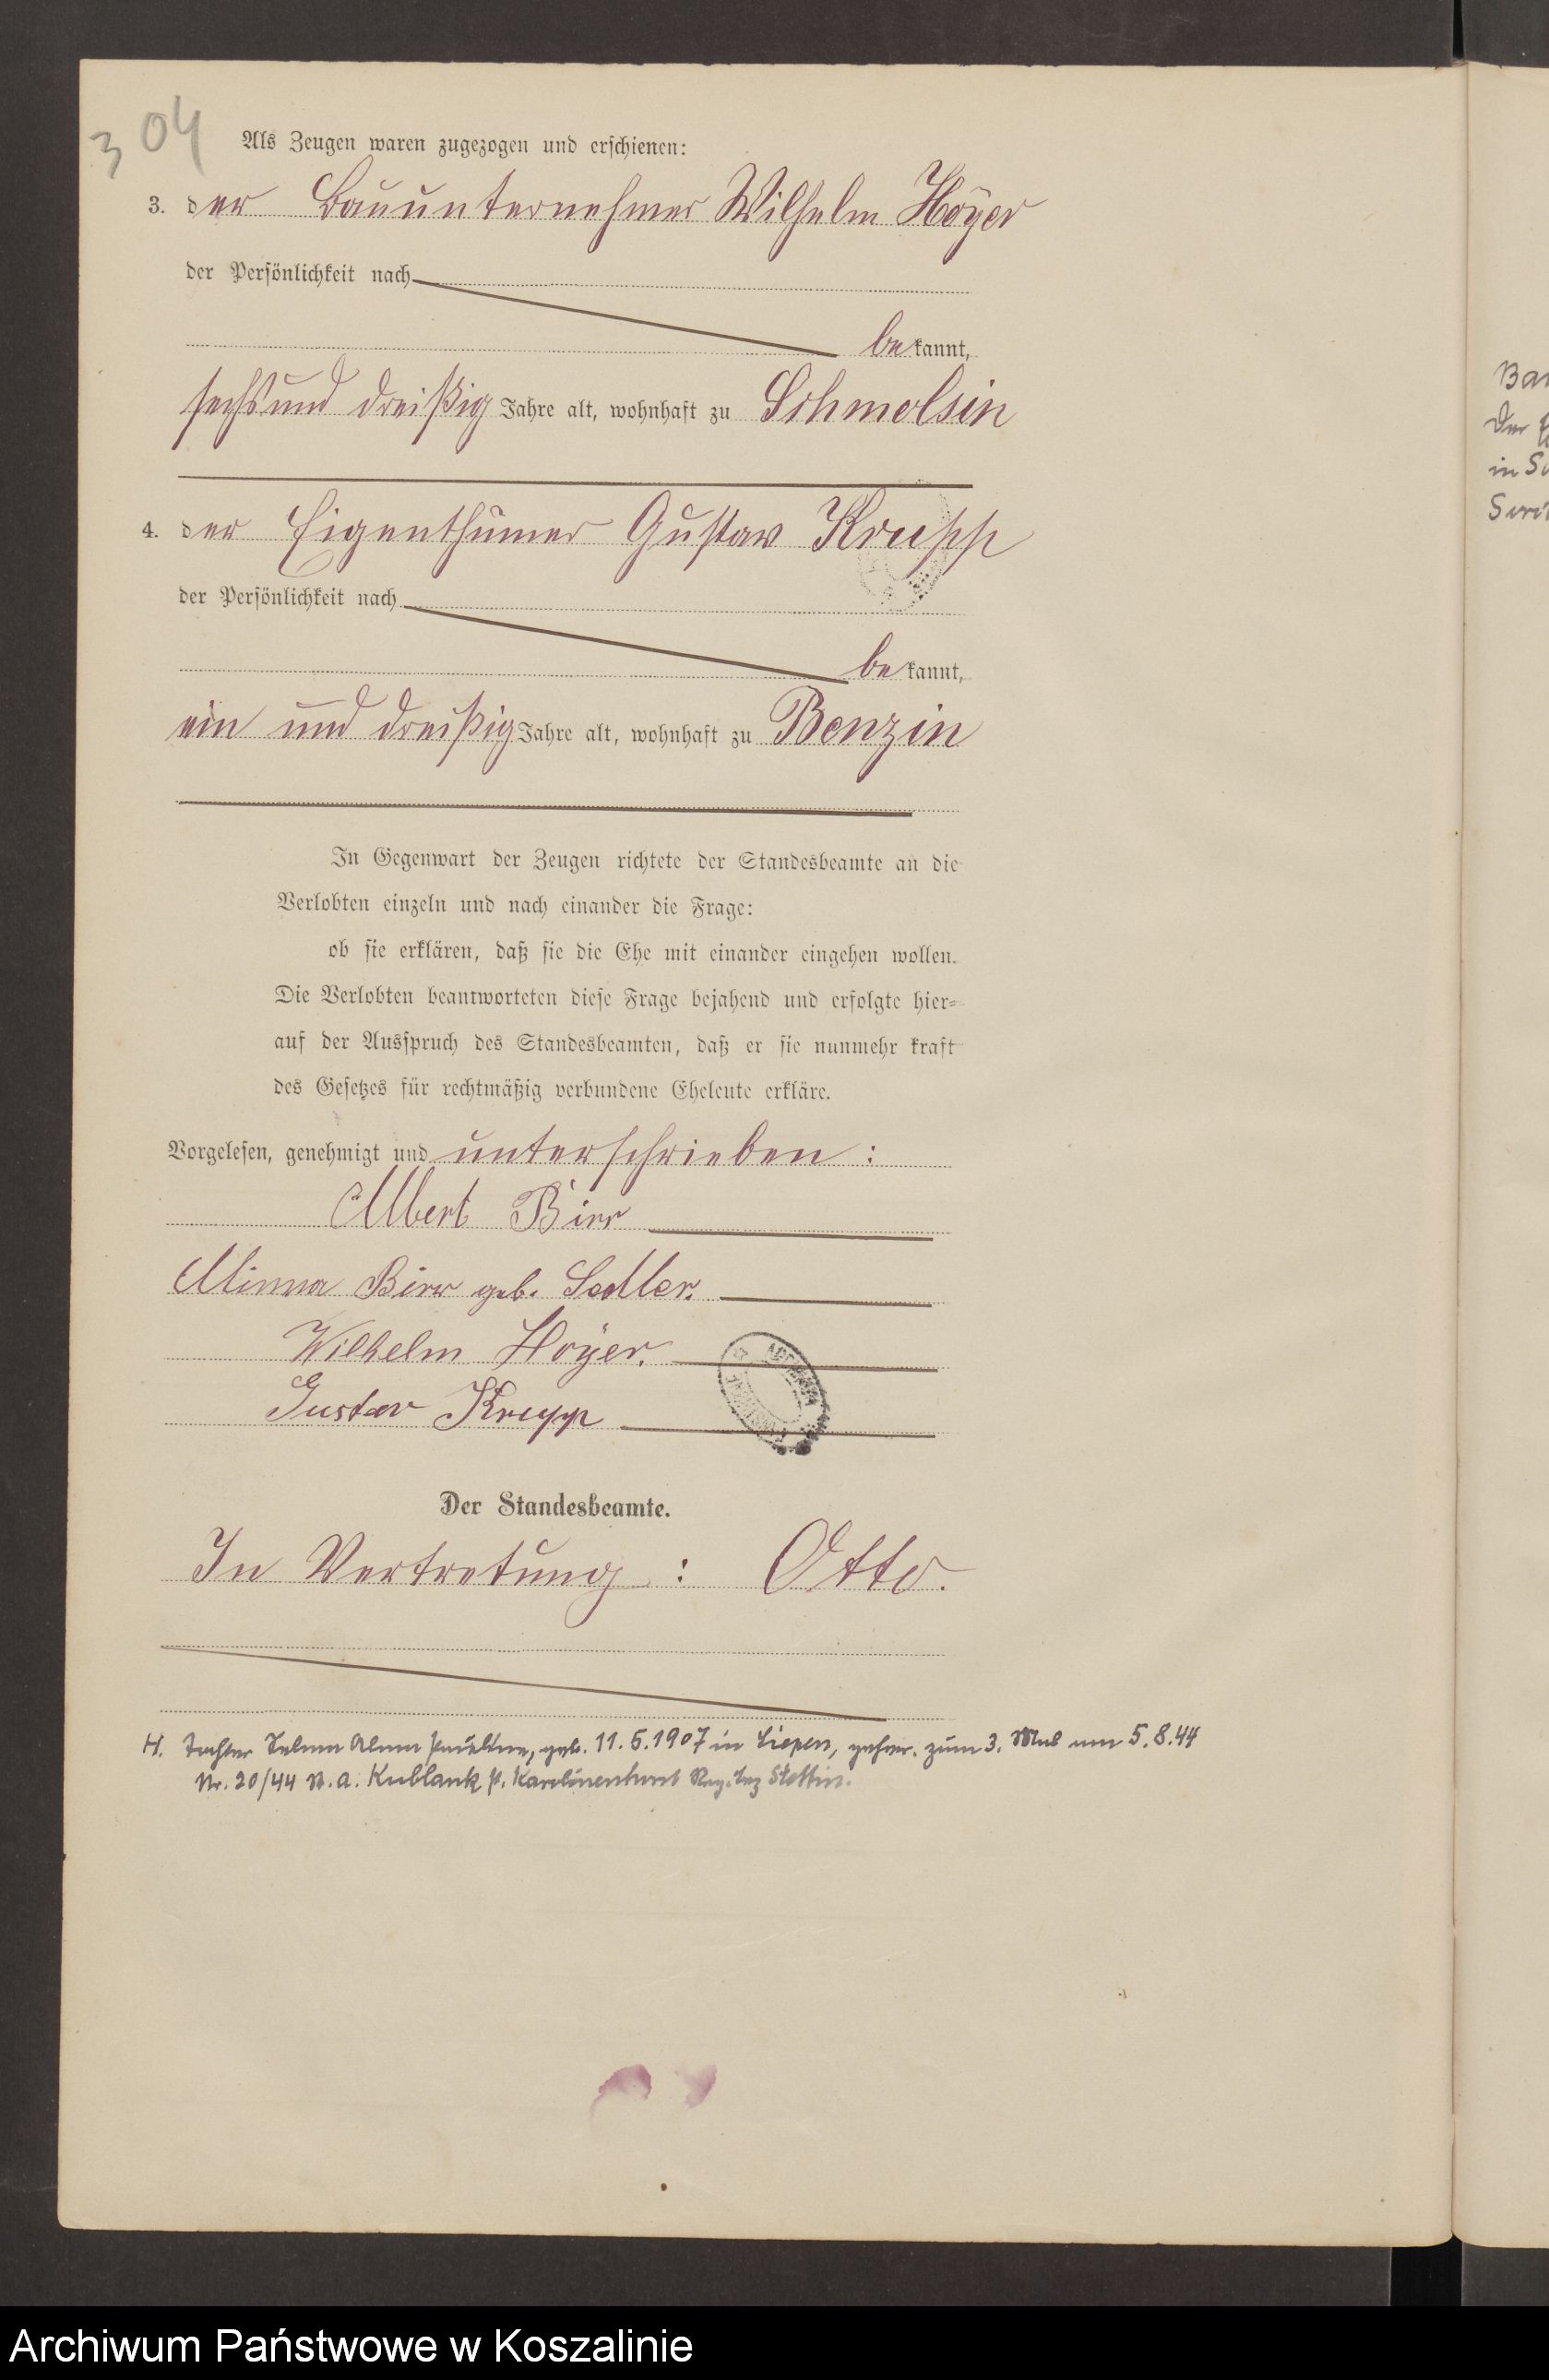 304
Als Zeugen waren zugezogen und erschienen:
3. der Bauunternehmer Wilhelm Höyer
der Persönlichkeit nach
bekannt,
sechsund dreißig Jahre alt, wohnhaft zu Schmolsin
4. der Eigenthümer Gustav Krupp
der Persönlichkeit nach
bekannt,
ein und dreißig Jahre alt, wohnhaft zu Benzin
In Gegenwart der Zeugen richtete der Standesbeamte an die
Verlobten einzeln und nach einander die Frage:
ob sie erklären, daß sie die Ehe mit einander eingehen wollen.
Die Verlobten beantworteten diese Frage bejahend und erfolgte hier=
auf der Ausspruch des Standesbeamten, daß er sie nunmehr kraft
des Gesetzes für rechtmäßig verbundene Eheleute erkläre.
Vorgelesen, genehmigt und unterschrieben:
Albert Birr
Minna Birr geb. Sedler.
Wilhelm Höyer.
Gustav Krupp
Der Standesbeamte.
In Vertretung: Otto.
H. Tochter Alma Pauline, geb. 11.5.1907 in Liepen, gehei. zum 3. Mal am 5.8.44
Nr. 20/44 St.A. Kublank P. Karolinenhorst Reg. Bez Stettin.
Der
in
Archiwum Państwowe w Koszalinie